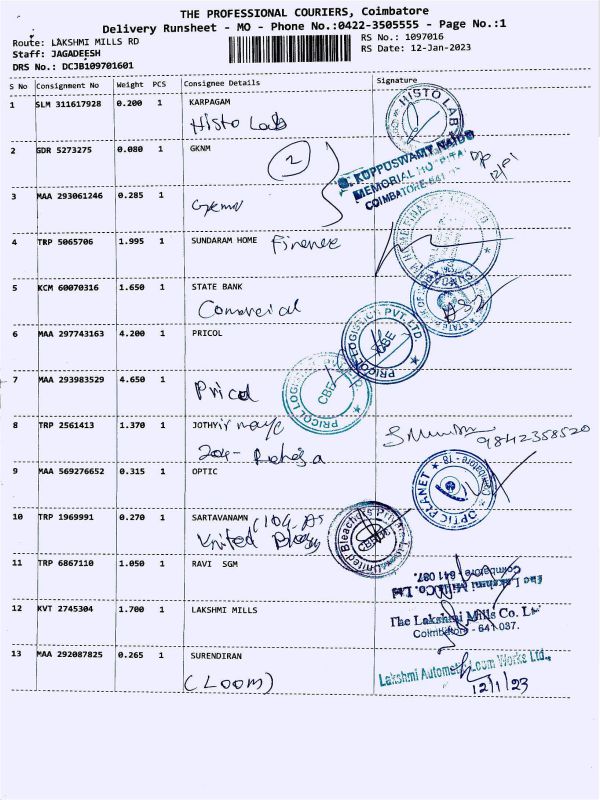 THE PROFESSIONAL COURIERS, Coimbatore
Delivery Runsheet - MO - Phone No.:0422-3505555 - Page No.:1
Route: LAKSHMI MILLS RD
Staff: JAGADEESH
DRS No.: DCJB109701601
RS No.: 1097016
RS Date: 12-Jan-2023
S No Consignment No Weight PCS Consignee Details Signature
1 SLM 311617928 0.200 1 KARPAGAM
Histo Lab
HISTO LAB
2 GDR 5273275 0.080 1 GKNM
2
G. KUPPUSWAMY NAIDU
MEMORIAL HOSPITAL
COIMBATORE-641
3 MAA 293061246 0.285 1
4 TRP 5065706 1.995 1 SUNDARAM HOME Finance
5 KCM 60070316 1.650 1 STATE BANK
Comercial
6 MAA 297743163 4.200 1 PRICOL
PRICOL LOGISTICS PVT. LTD.
CBE
7 MAA 293983529 4.650 1
Pricol
PRICOL LOGISTICS
CBE
8 TRP 2561413 1.370 1 JOTHY
204-
9842358520
9 MAA 569276652 0.315 1 OPTIC
OPTIC PLANET Coimbatore - 18
10 TRP 1969991 0.270 1 SARTAVANAMN
United
United Bleachers Private
11 TRP 6867110 1.050 1 RAVI SGM
The Lakshmi Mills Co. Ltd
Coimbatore - 641 037.
12 KVT 2745304 1.700 1 LAKSHMI MILLS
The Lakshmi Mills Co. Lt
Coimbatore - 641 037.
13 MAA 292087825 0.265 1 SURENDIRAN
(LOOM)
Lakshmi Automatic Loom Works Ltd.,
12/1/23